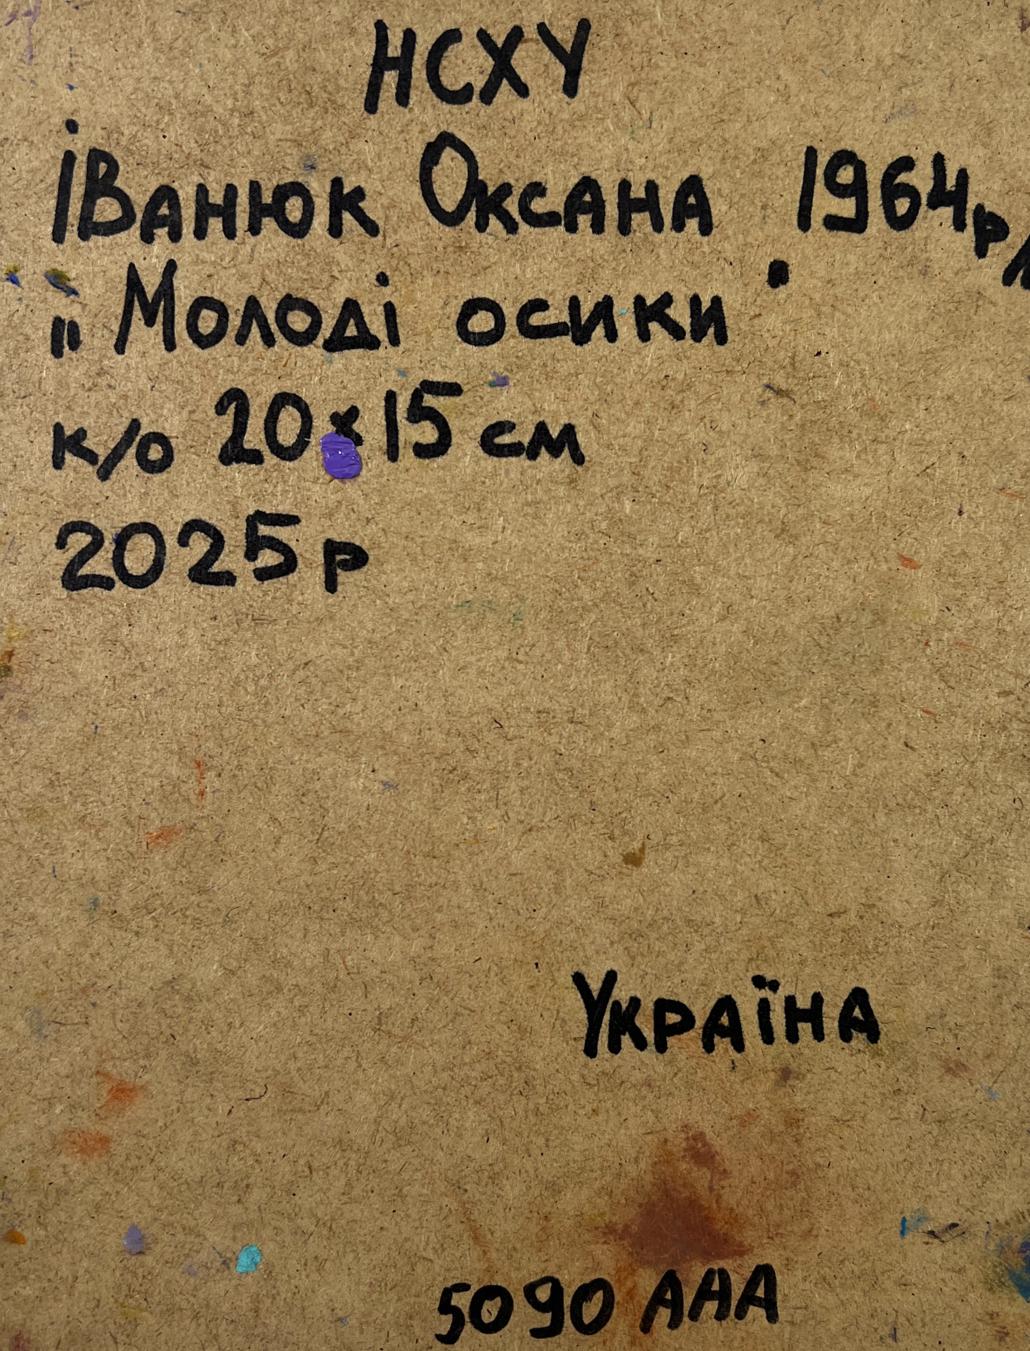 НСХУ
Іванюк Оксана 1964р
"Молоді осики"
к/о 20x15 см
2025р
Україна
5090 ААА